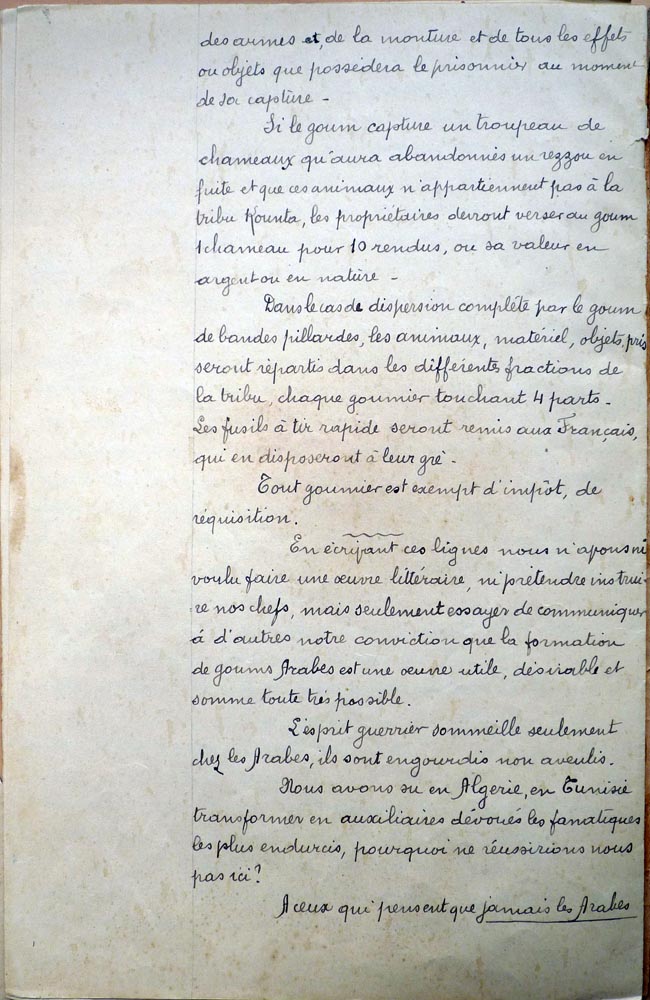 des armes et, de la monture et de tous les effets
ou objets que possèdera le prisonnier au moment
de sa capture -
Si le goum capture un troupeau de
chameaux qu'aura abandonnés un rezzou en
fuite et que ces animaux n'appartiennent pas à la
tribu Kounta, les propriétaires devront verser au goum
1 chameau pour 10 rendus, ou sa valeur en
argent ou en nature -
Dans le cas de dispersion complète par le goum
de bandes pillardes, les animaux, matériel, objets pris
seront répartis dans les différentes fractions de
la tribu, chaque goumier touchant 4 parts -
Les fusils à tir rapide seront remis aux Français,
qui en disposeront à leur gré -
Tout goumier est exempt d'impôt, de
réquisition.
En écrivant ces lignes nous n'avons ni
voulu faire une œuvre littéraire, ni prétendre instrui-
re nos chefs, mais seulement essayer de communiquer
á d'autres notre conviction que la formation
de goums Arabes est une œuvre utile, désirable et
somme toute très possible.
L'esprit guerrier sommeille seulement
chez les Arabes, ils sont engourdis non aveulis.
Nous avons su en Algérie, en Tunisie
transformer en auxiliaires dévoués les fanatiques
les plus endurcis, pourquoi ne réussirions nous
pas ici?
A ceux qui pensent que jamais les Arabes